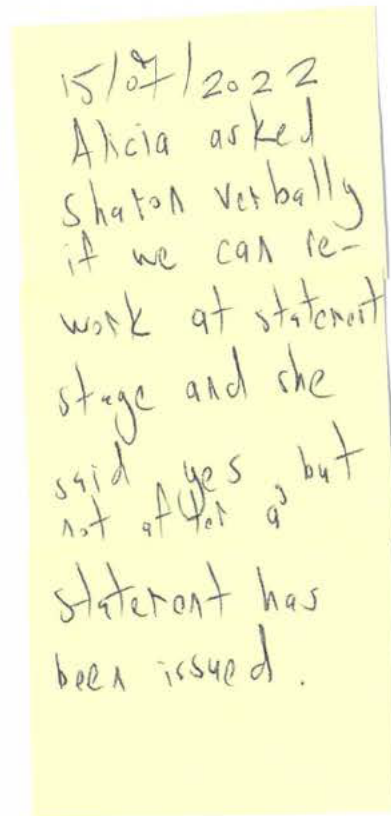 15/07/2022
Alicia asked
Sharon verbally
if we can re-
work at statement
stage and she
said yes, but
not after a
statement has
been issued.